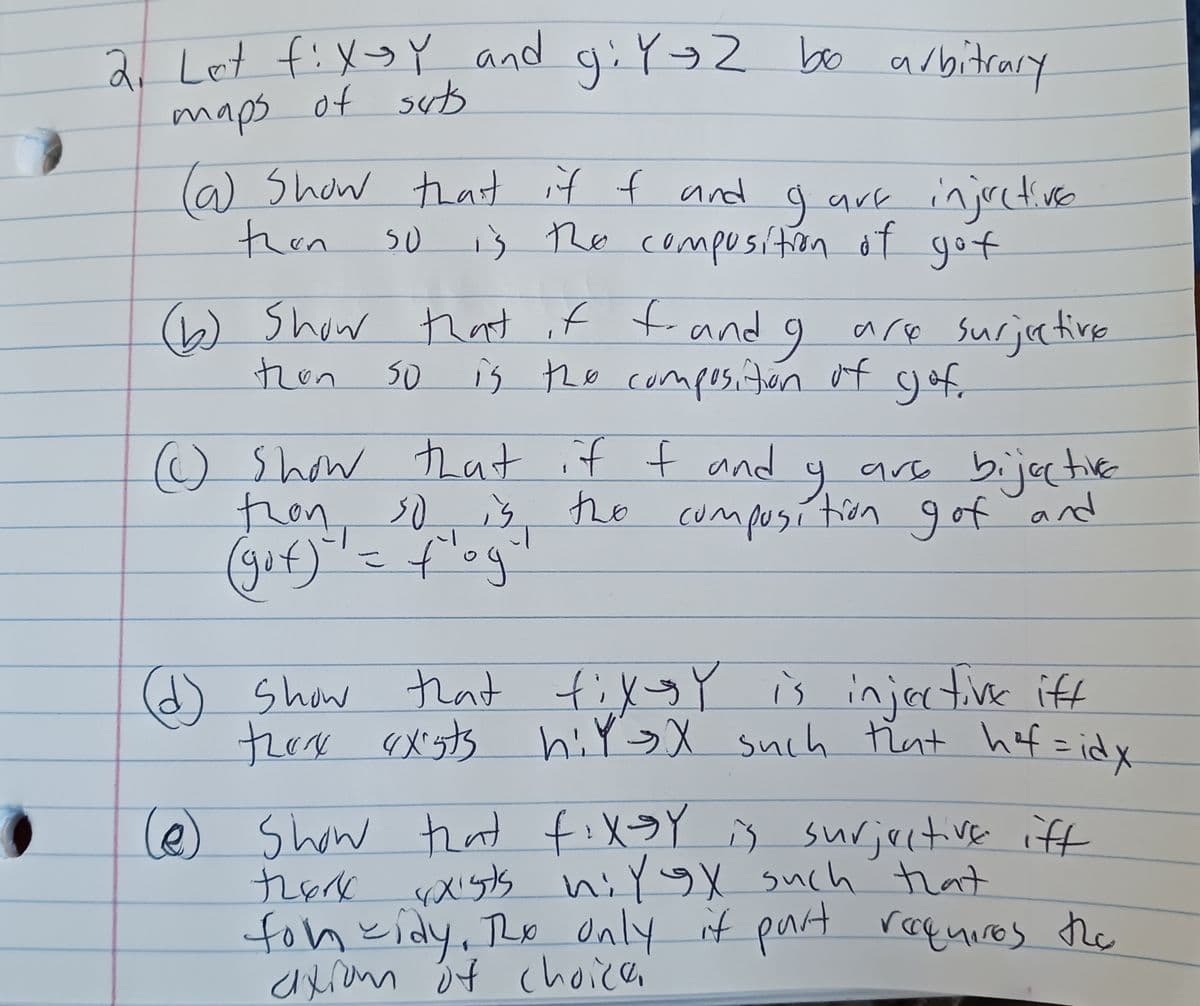 2. Let f: X→Y and g: Y→Z be arbitrary
maps of sets
(a) Show that if f and g are injective
then so is the composition of gof
(b) Show that if f and g are surjective
then so is the composition of gof.
(c) Show that if f and g are bijective
then so is the composition gof and
(gof)⁻¹ = f⁻¹og⁻¹
(d) Show that f: X→Y is injective iff
there exists h: Y→X such that hof = idx
(e) Show that f: X→Y is surjective iff
there exists h: Y→X such that
foh = idy. The only if part requires the
axiom of choice.